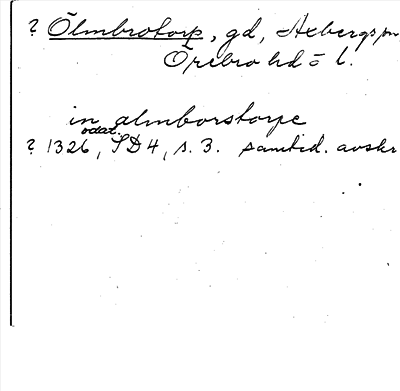 ? Ölmbrotorp, gd, Axbergs sn
Örebro hd o l.
in almborstorpe
odat.
? 1326, SD 4, s. 3. samtid. avskr